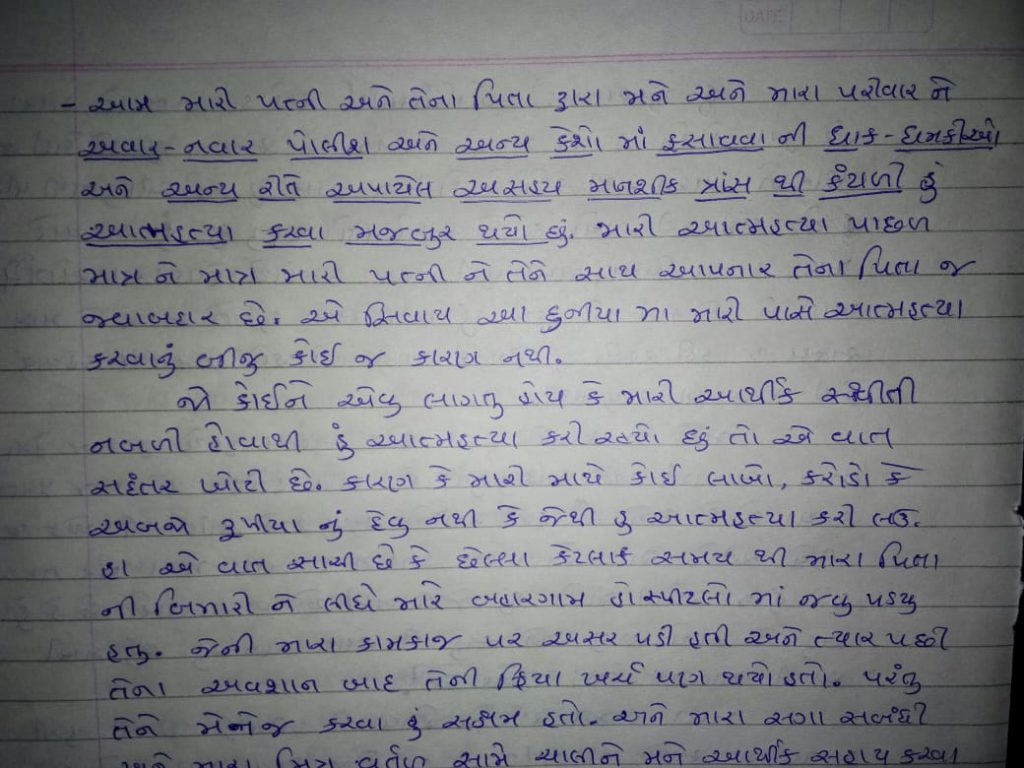 DATE
- આમ મારી પત્ની અને તેના પિતા દ્વારા મને અને મારા પરીવાર ને
અવાર-નવાર પોલીશ અને અન્ય કેશો માં ફસાવવા ની ધાક-ધમકીઓ
અને અન્ય રીતે અપાયેલ અસહ્ય મનશીક ત્રાંસ થી કંટાળી હું
આત્મહત્યા કરવા મજબુર થયો છું. મારી આત્મહત્યા પાછળ
માત્ર ને માત્ર મારી પત્ની ને તેને સાથ આપનાર તેના પિતા જ
જવાબદાર છે. એ સિવાય આ દુનીયા મા મારી પાસે આત્મહત્યા
કરવાનું બીજુ કોઈ જ કારણ નથી.
જો કોઈને એવુ લાગતુ હોય કે મારી આર્થીક સ્થીતી
નબળી હોવાથી હું આત્મહત્યા કરી રહ્યો છું તો એ વાત
સદંતર ખોટી છે. કારણ કે મારી માથે કોઈ લાખો, કરોડો કે
અબજો રૂપીયા નું દેવુ નથી કે જેથી હુ આત્મહત્યા કરી લઉ.
હા એ વાત સાચી છે કે છેલ્લા કેટલાક સમય થી મારા પિતા
ની બિમારી ને લીધે મારે બહારગામ હોસ્પીટલો માં જવુ પડ્યુ
હતુ. જેની મારા કામકાજ પર અસર પડી હતી અને ત્યાર પછી
તેના અવશાન બાદ તેની ક્રિયા ખર્ચ પણ થયો હતો. પરંતુ
તેને મેનેજ કરવા હું સક્ષમ હતો. અને મારા સગા સબંધી
અને મારા મિત્ર વર્તુળ સામે ચાલીને મને આર્થીક સહાય કરવા